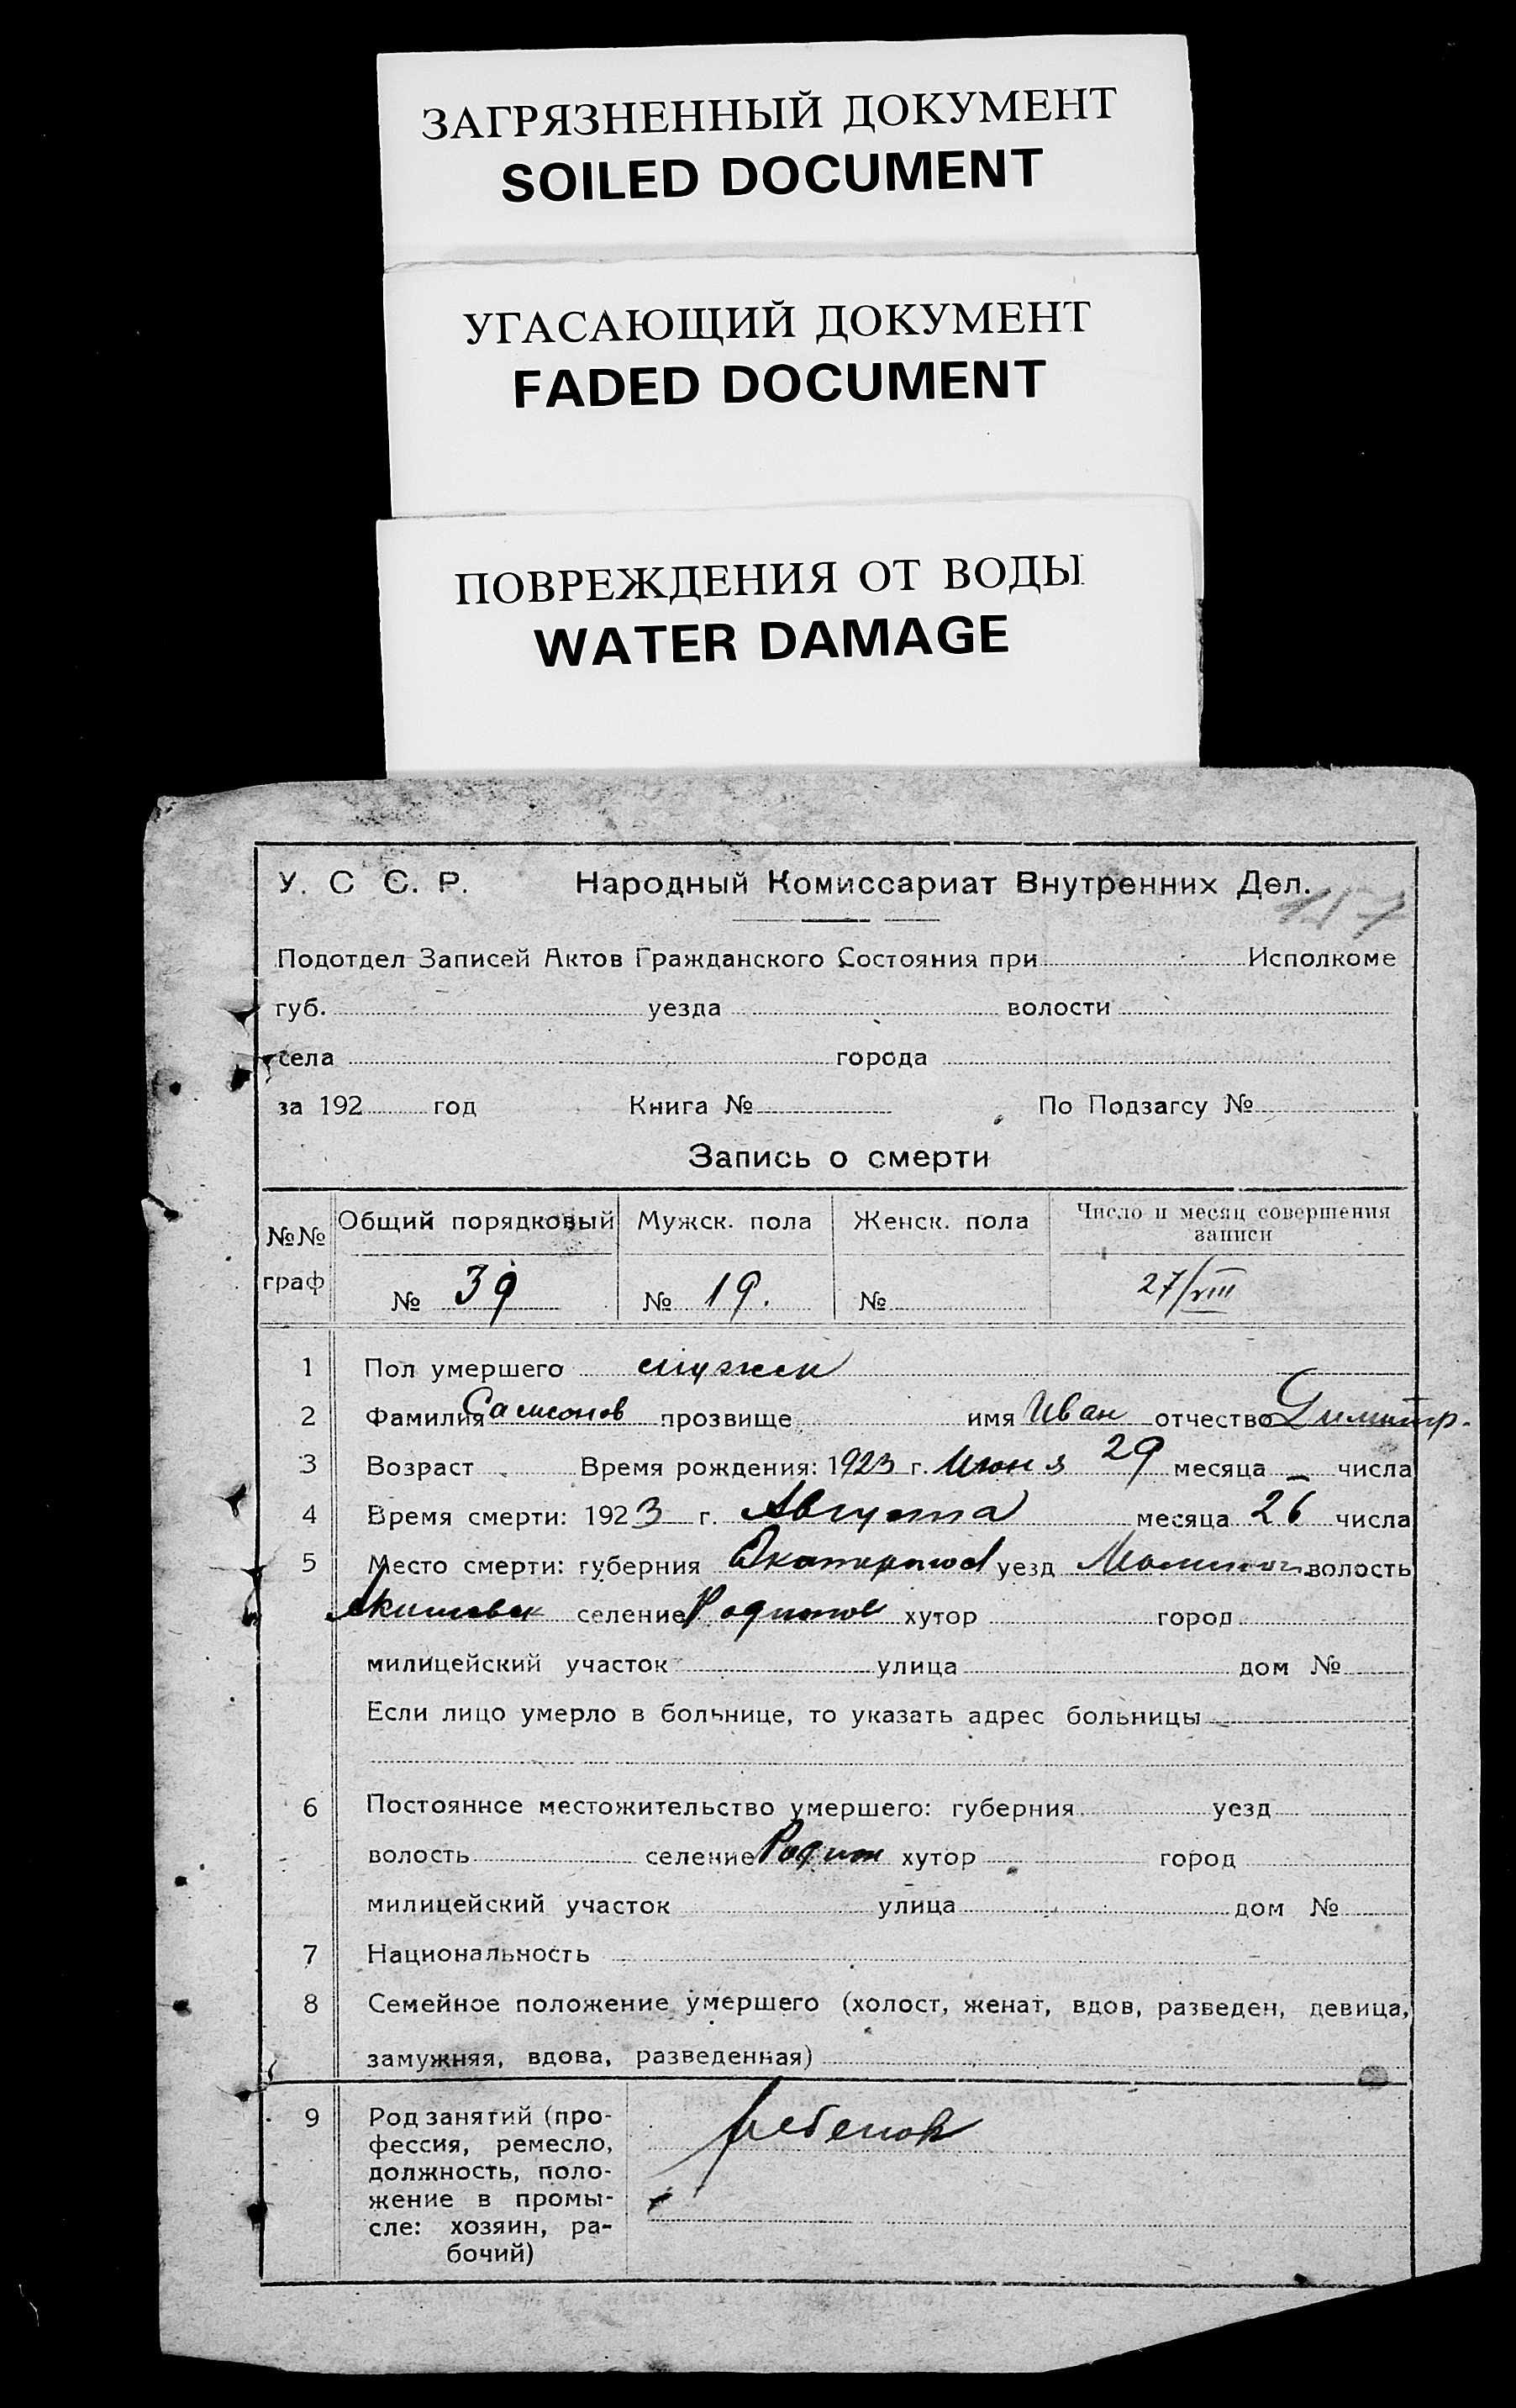 ЗАГРЯЗНЕННЫЙ ДОКУМЕНТ
SOILED DOCUMENT
УГАСАЮЩИЙ ДОКУМЕНТ
FADED DOCUMENT
ПОВРЕЖДЕНИЯ ОТ ВОДЫ
WATER DAMAGE
У. С С. Р. Народный Комиссариат Внутренних Дел.
Подотдел Записей Актов Гражданского Состояния при Исполкоме
губ. уезда волости
села города
за 192 год Книга № По Подзагсу №
Запись о смерти
№№ граф Общий порядковый Мужск. пола Женск. пола Число и месяц совершения записи
№ 39 № 19. № 27/VIII
1 Пол умершего мужск
2 Фамилия Самсонов прозвище имя Иван отчество Димитр.
3 Возраст Время рождения: 1923 г. Июня 29 месяца — числа
4 Время смерти: 1923 г. Августа месяца 26 числа
5 Место смерти: губерния уезд волость
селение Родионов хутор город
милицейский участок улица дом №
Если лицо умерло в больнице, то указать адрес больницы
6 Постоянное местожительство умершего: губерния уезд
волость селение Родион хутор город
милицейский участок улица дом №
7 Национальность
8 Семейное положение умершего (холост, женат, вдов, разведен, девица,
замужняя, вдова, разведенная)
9 Род занятий (про-
фессия, ремесло,
должность, поло-
жение в промы-
сле: хозяин, ра-
бочий)
ребенок